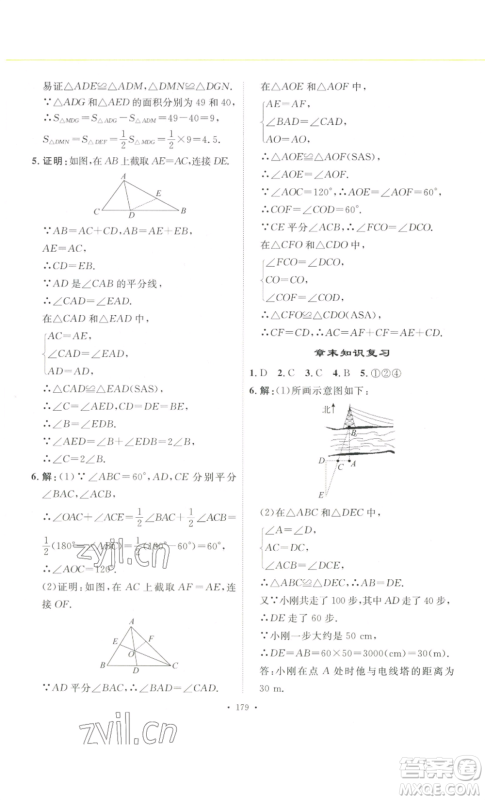 易证△ADE≌△ADM,△DMN≌△DGN.
∵△ADG 和△AED 的面积分别为 49 和 40,
∴S△MDG=S△ADG-S△ADM=49-40=9,
S△DMN=S△DEF=1/2 S△MDG=1/2×9=4.5.
5.证明:如图,在 AB 上截取 AE=AC,连接 DE.
A
E
C D B
∵AB=AC+CD,AB=AE+EB,
AE=AC,
∴CD=EB.
∵AD 是∠CAB 的平分线,
∴∠CAD=∠EAD.
在△CAD 和△EAD 中,
AC=AE,
∠CAD=∠EAD,
AD=AD,
∴△CAD≌△EAD(SAS)
∴∠C=∠AED,CD=DE.
∴DE=EB.
∴∠B=∠EDB.
∴∠C=∠AED=2∠B.
6.解:(1)∵∠ABC=60°,AD,CE 分别平分
∠BAC,∠ACB,
∴∠OAC+∠ACE=1/2∠BAC+1/2∠ACB=
1/2(180°-∠ABC)=1/2(180°-60°)=60°,
∴∠AOC=120°.
(2)证明:如图,在 AC 上截取 AF=AE,连
接 OF.
A
E F
O
B D C
∵AD 平分∠BAC,∴∠EAO=∠FAO.
在△AOE 和△AOF 中,
AE=AF,
∠EAO=∠FAO,
AO=AO,
∴△AOE≌△AOF(SAS)
∴∠AOE=∠AOF.
∵∠AOC=120°,∴∠AOE=60°,
∴∠COF=∠COD=60°.
∵CE 平分∠ACB,∴∠DCO=∠FCO.
在△CFO 和△CDO 中,
∠FCO=∠DCO,
CO=CO,
∠COF=∠COD,
∴△CFO≌△CDO(ASA),
∴CF=CD,∴AC=AF+CF=AE+CD.
章末知识复习
1.D 2.C 3.C 4.B 5.①②④
6.解:(1)所画示意图如下:
北
B
D C A
E
(2)在△ABC 和△DEC 中,
∠A=∠D,
AC=DC,
∠ACB=∠DCE,
∴△ABC≌△DEC,∴AB=DE.
又∵小刚共走了 100 步,其中 AD 走了 40 步,
∴DE 走了 60 步.
∵小刚一步大约是 50 cm,
∴DE=AB=60×50=3000(cm)=30(m).
答:小刚在点 A 处时他与电线塔的距离为
30 m.
zyjl.cn
zyjl.cn
· 179 ·
答案圈
MXQE.COM